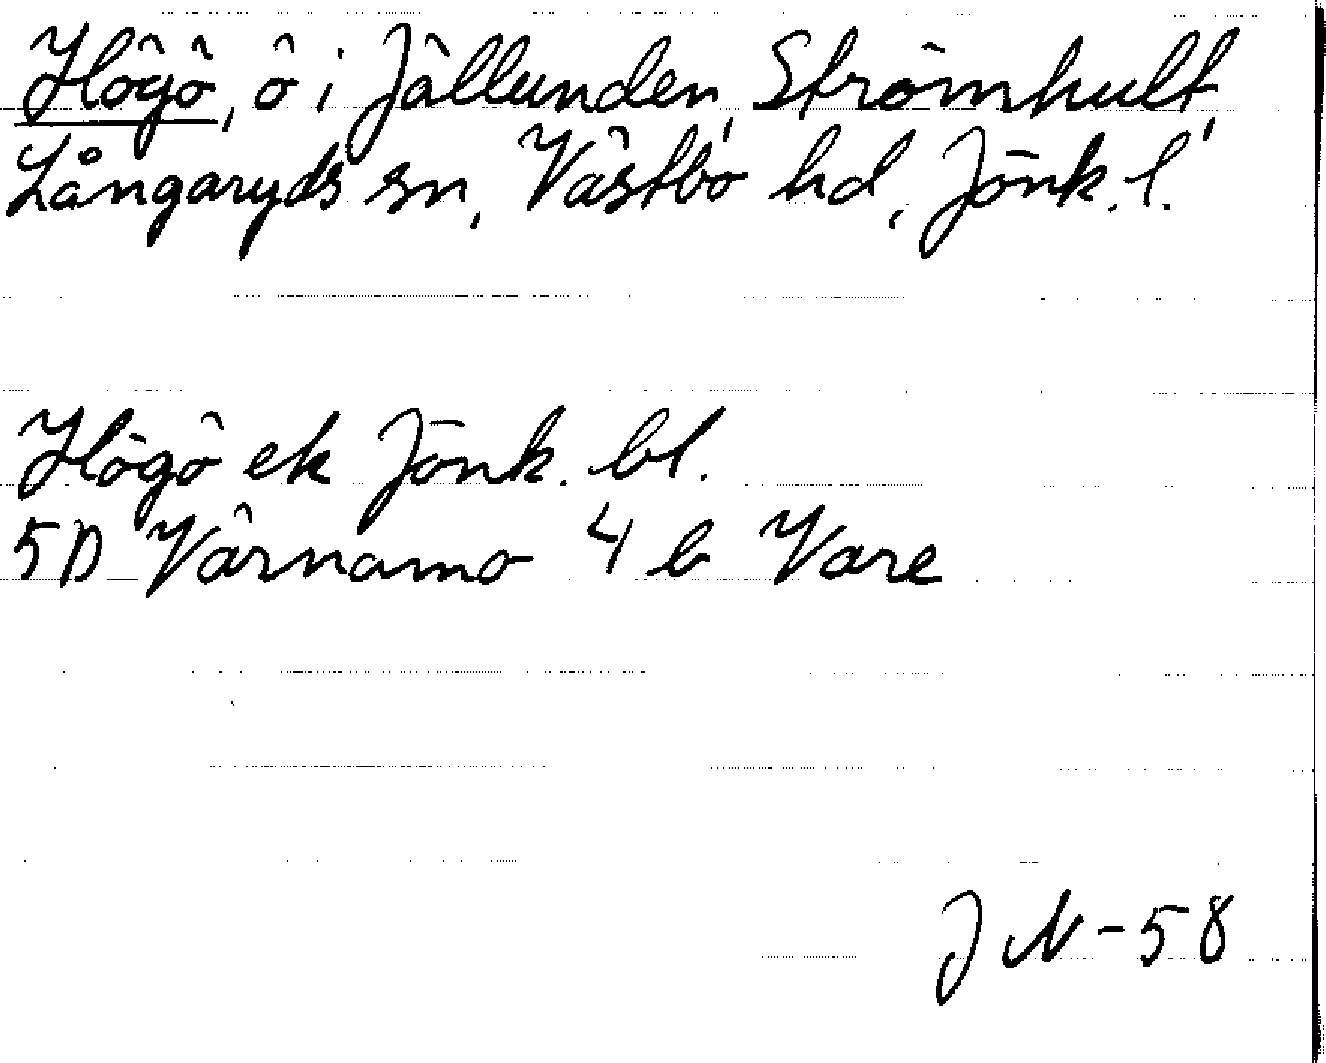 Högö, ö i Jällunden, Strömhult,
Långaryds sn, Västbo hd, Jönk. l.
Högö ek Jönk. bl.
5D Värnamo 4 b Vare
J N-58